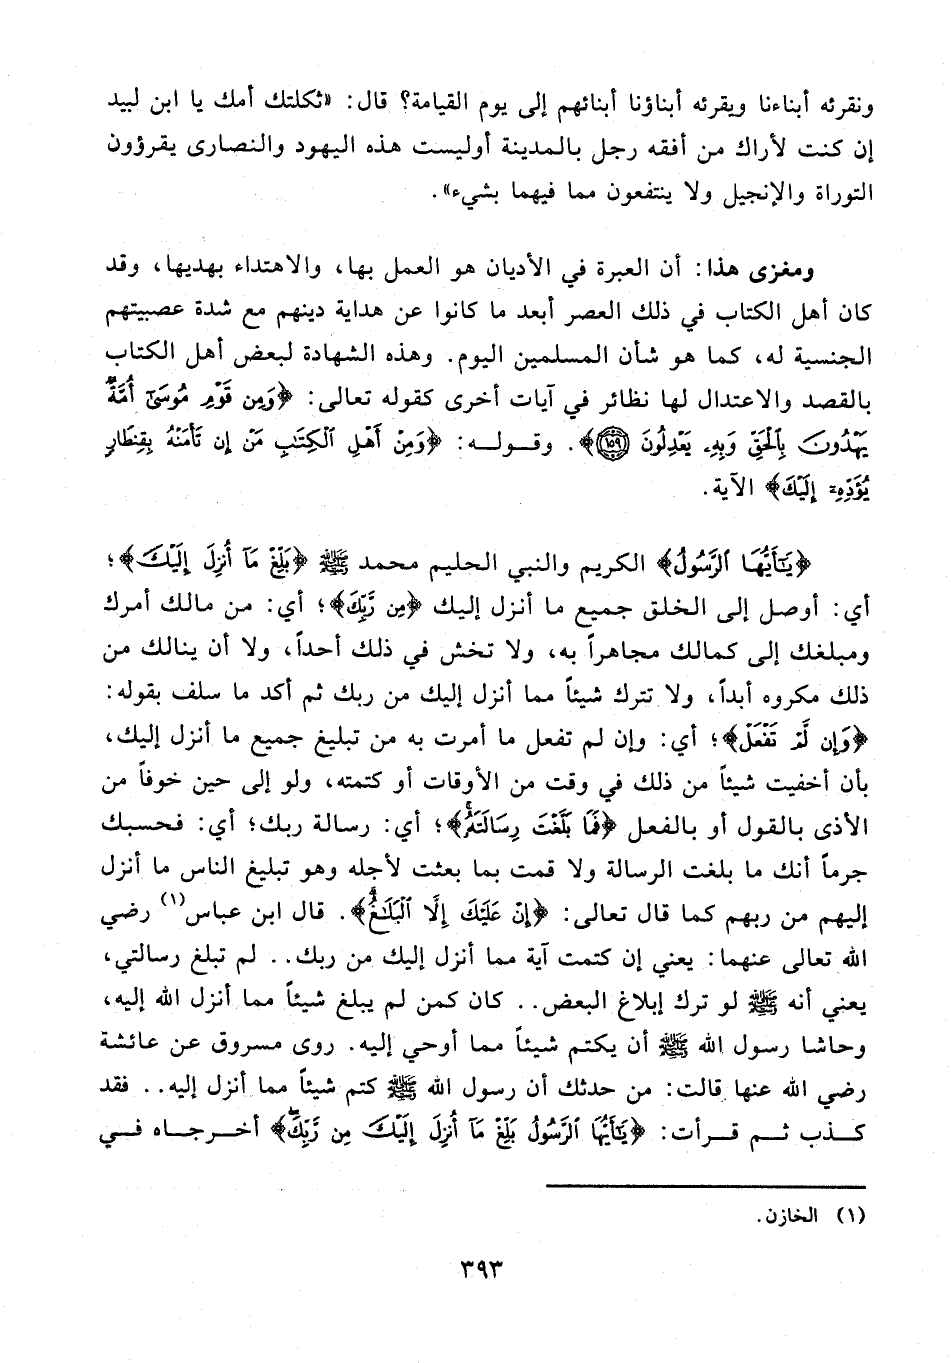 ونقرئه أبناءنا ويقرئه أبناؤنا أبنائهم إلى يوم القيامة؟ قال: «ثكلتك أمك يا ابن لبيد
إن كنت لأراك من أفقه رجل بالمدينة أوليست هذه اليهود والنصارى يقرؤون
التوراة والإنجيل ولا ينتفعون مما فيهما بشيء».
ومغزى هذا: أن العبرة في الأديان هو العمل بها، والاهتداء بهديها، وقد
كان أهل الكتاب في ذلك العصر أبعد ما كانوا عن هداية دينهم مع شدة عصبيتهم
الجنسية له، كما هو شأن المسلمين اليوم. وهذه الشهادة لبعض أهل الكتاب
بالقصد والاعتدال لها نظائر في آيات أخرى كقوله تعالى: ﴿وَمِن قَوْمِ مُوسَىٰٓ أُمَّةٌ
يَهْدُونَ بِٱلْحَقِّ وَبِهِۦ يَعْدِلُونَ ۝١٥٩﴾. وقوله: ﴿وَمِنْ أَهْلِ ٱلْكِتَٰبِ مَنْ إِن تَأْمَنْهُ بِقِنطَارٍ
يُؤَدِّهِۦٓ إِلَيْكَ﴾ الآية.
﴿يَٰٓأَيُّهَا ٱلرَّسُولُ﴾ الكريم والنبي الحليم محمد ﷺ ﴿بَلِّغْ مَآ أُنزِلَ إِلَيْكَ﴾؛
أي: أوصل إلى الخلق جميع ما أنزل إليك ﴿مِن رَّبِّكَ﴾؛ أي: من مالك أمرك
ومبلغك إلى كمالك مجاهراً به، ولا تخش في ذلك أحداً، ولا أن ينالك من
ذلك مكروه أبداً، ولا تترك شيئاً مما أنزل إليك من ربك ثم أكد ما سلف بقوله:
﴿وَإِن لَّمْ تَفْعَلْ﴾؛ أي: وإن لم تفعل ما أمرت به من تبليغ جميع ما أنزل إليك،
بأن أخفيت شيئاً من ذلك في وقت من الأوقات أو كتمته، ولو إلى حين خوفاً من
الأذى بالقول أو بالفعل ﴿فَمَا بَلَّغْتَ رِسَالَتَهُۥ﴾؛ أي: رسالة ربك؛ أي: فحسبك
جرماً أنك ما بلغت الرسالة ولا قمت بما بعثت لأجله وهو تبليغ الناس ما أنزل
إليهم من ربهم كما قال تعالى: ﴿إِنْ عَلَيْكَ إِلَّا ٱلْبَلَٰغُ﴾. قال ابن عباس(١) رضي
الله تعالى عنهما: يعني إن كتمت آية مما أنزل إليك من ربك.. لم تبلغ رسالتي،
يعني أنه ﷺ لو ترك إبلاغ البعض.. كان كمن لم يبلغ شيئاً مما أنزل الله إليه،
وحاشا رسول الله ﷺ أن يكتم شيئاً مما أوحي إليه. روى مسروق عن عائشة
رضي الله عنها قالت: من حدثك أن رسول الله ﷺ كتم شيئاً مما أنزل إليه.. فقد
كذب ثم قرأت: ﴿يَٰٓأَيُّهَا ٱلرَّسُولُ بَلِّغْ مَآ أُنزِلَ إِلَيْكَ مِن رَّبِّكَ﴾ أخرجاه في
(١) الخازن.
٣٩٣